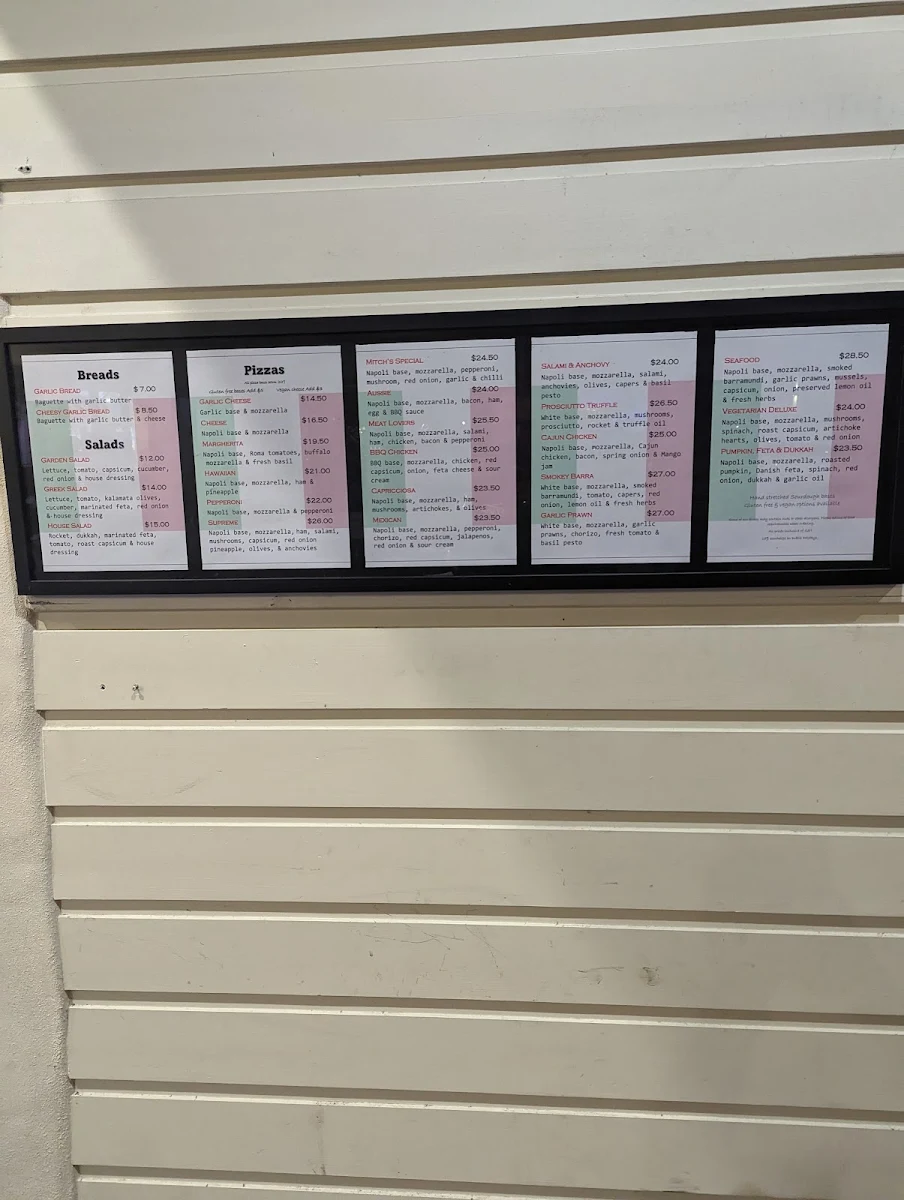 Breads
GARLIC BREAD $7.00
Baguette with garlic butter
CHEESY GARLIC BREAD $8.50
Baguette with garlic butter & cheese
Salads
GARDEN SALAD $12.00
Lettuce, tomato, capsicum, cucumber,
red onion & house dressing
GREEK SALAD $14.00
Lettuce, tomato, kalamata olives,
cucumber, marinated feta, red onion
& house dressing
HOUSE SALAD $15.00
Rocket, dukkah, marinated feta,
tomato, roast capsicum & house
dressing
Pizzas
GARLIC CHEESE $14.50
Garlic base & mozzarella
CHEESE $16.50
Napoli base & mozzarella
MARGHERITA $19.50
Napoli base, Roma tomatoes, buffalo
mozzarella & fresh basil
HAWAIIAN $21.00
Napoli base, mozzarella, ham &
pineapple
PEPPERONI $22.00
Napoli base, mozzarella & pepperoni
SUPREME $26.00
Napoli base, mozzarella, ham, salami,
mushrooms, capsicum, red onion
pineapple, olives, & anchovies
MITCH'S SPECIAL $24.50
Napoli base, mozzarella, pepperoni,
mushroom, red onion, garlic & chilli
AUSSIE $24.00
Napoli base, mozzarella, bacon, ham,
egg & BBQ sauce
MEAT LOVERS $25.50
Napoli base, mozzarella, salami,
ham, chicken, bacon & pepperoni
BBQ CHICKEN $25.00
BBQ base, mozzarella, chicken, red
capsicum, onion, feta cheese & sour
cream
CAPRICCIOSA $23.50
Napoli base, mozzarella, ham,
mushrooms, artichokes, & olives
MEXICAN $23.50
Napoli base, mozzarella, pepperoni,
chorizo, red capsicum, jalapenos,
red onion & sour cream
SALAMI & ANCHOVY $24.00
Napoli base, mozzarella, salami,
anchovies, olives, capers & basil
pesto
PROSCIUTTO TRUFFLE $26.50
White base, mozzarella, mushrooms,
prosciutto, rocket & truffle oil
CAJUN CHICKEN $25.00
Napoli base, mozzarella, Cajun
chicken, bacon, spring onion & Mango
jam
SMOKEY BARRA $27.00
White base, mozzarella, smoked
barramundi, tomato, capers, red
onion, lemon oil & fresh herbs
GARLIC PRAWN $27.00
White base, mozzarella, garlic
prawns, chorizo, fresh tomato &
basil pesto
SEAFOOD $28.50
Napoli base, mozzarella, smoked
barramundi, garlic prawns, mussels,
capsicum, onion, preserved lemon oil
& fresh herbs
VEGETARIAN DELUXE $24.00
Napoli base, mozzarella, mushrooms,
spinach, roast capsicum, artichoke
hearts, olives, tomato & red onion
PUMPKIN, FETA & DUKKAH $23.50
Napoli base, mozzarella, roasted
pumpkin, Danish feta, spinach, red
onion, dukkah & garlic oil
Hand stretched Sourdough bases
Gluten free & vegan options available